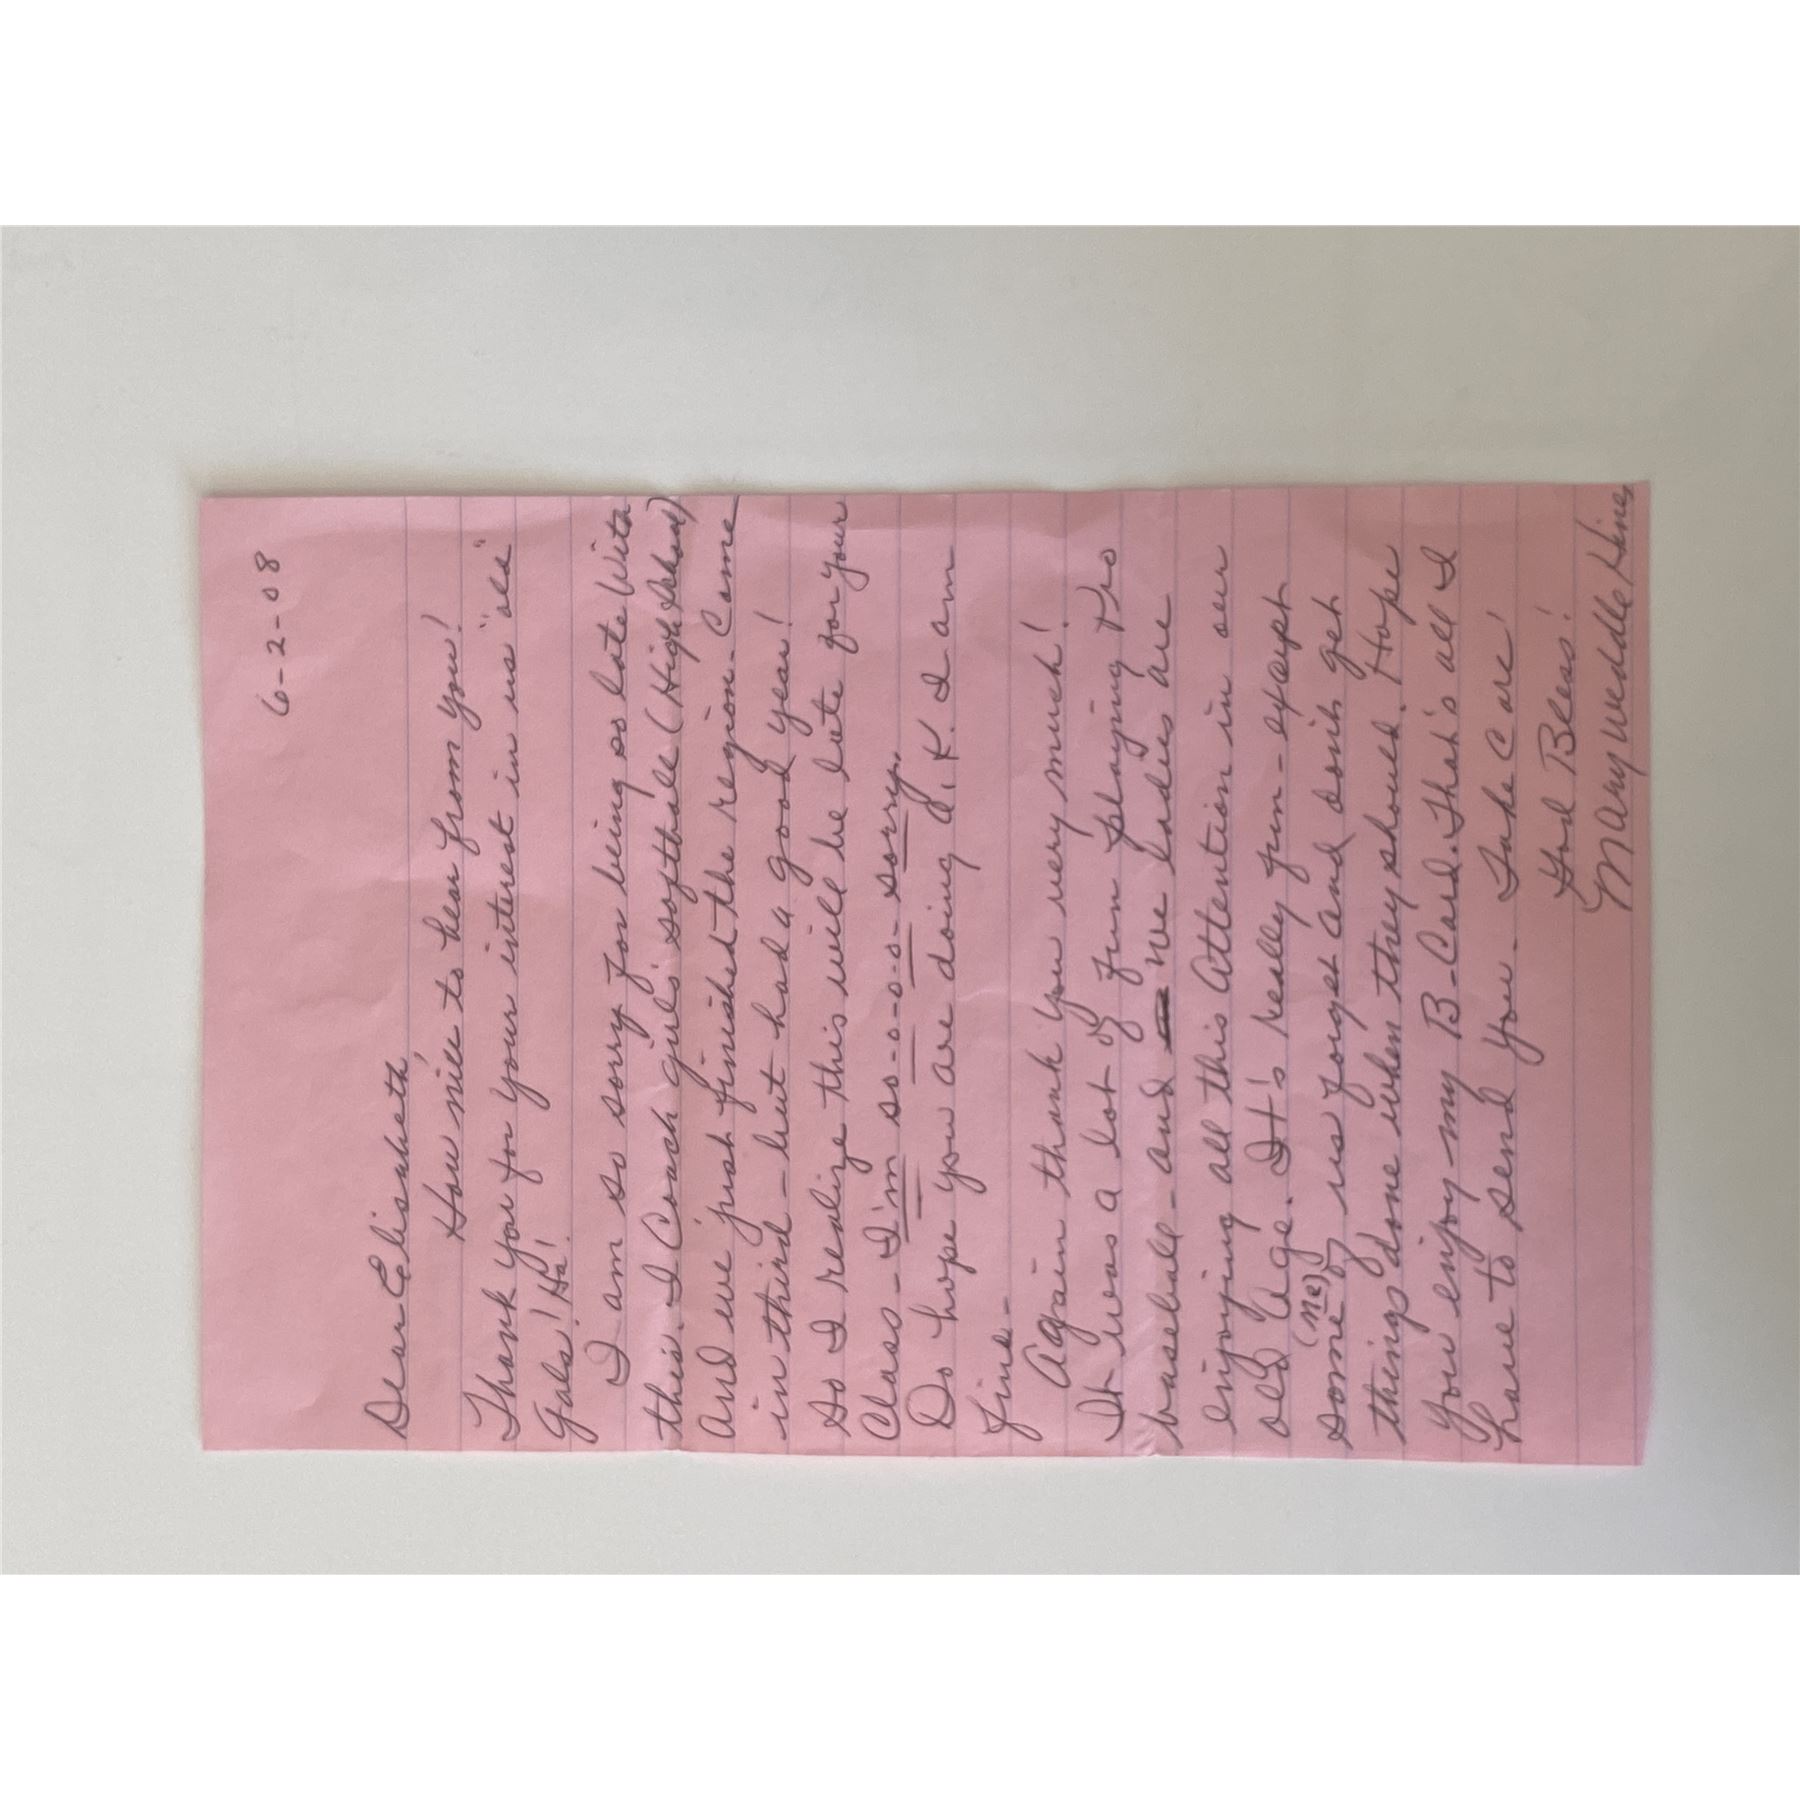 6-2-08
Dear Elisabeth
How nice to hear from you!
Thank you for your interest in us "old"
Gals! Ha!
I am so sorry for being so late with
this. I Coach girls' softball (High School)
And we just finished the region - Came
in third - but had a good year!
So I realize this will be late for your
Class - I'm so-o-o-o-o-sorry.
Do hope you are doing O.K. I am
fine -
Again thank you very much!
It was a lot of fun playing Pro
baseball - and we ladies are
enjoying all this Attention in our
old Age. It's really fun - except
some (me) of us forget and don't get
things done when they should. Hope
you enjoy my B-Card. That's all I
have to send you. Take Care!
God Bless!
Mary Weddle Hines